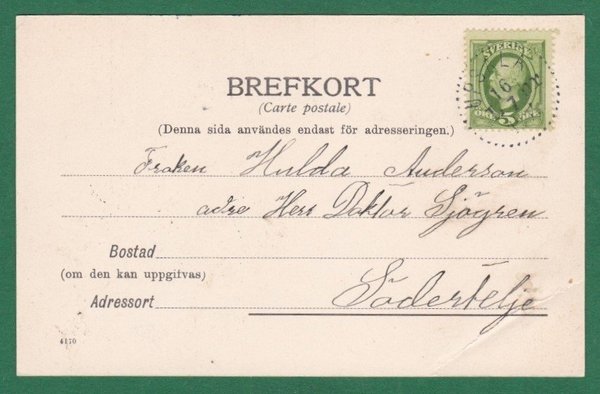 SVERIGE
5
ÖRE ÖRE
UPSALA
16
BREFKORT
(Carte postale)
(Denna sida användes endast för adresseringen.)
Fröken Hulda Anderson
adre Herr Doktor Sjögren
Bostad
(om den kan uppgifvas)
Södertelje
Adressort
4170